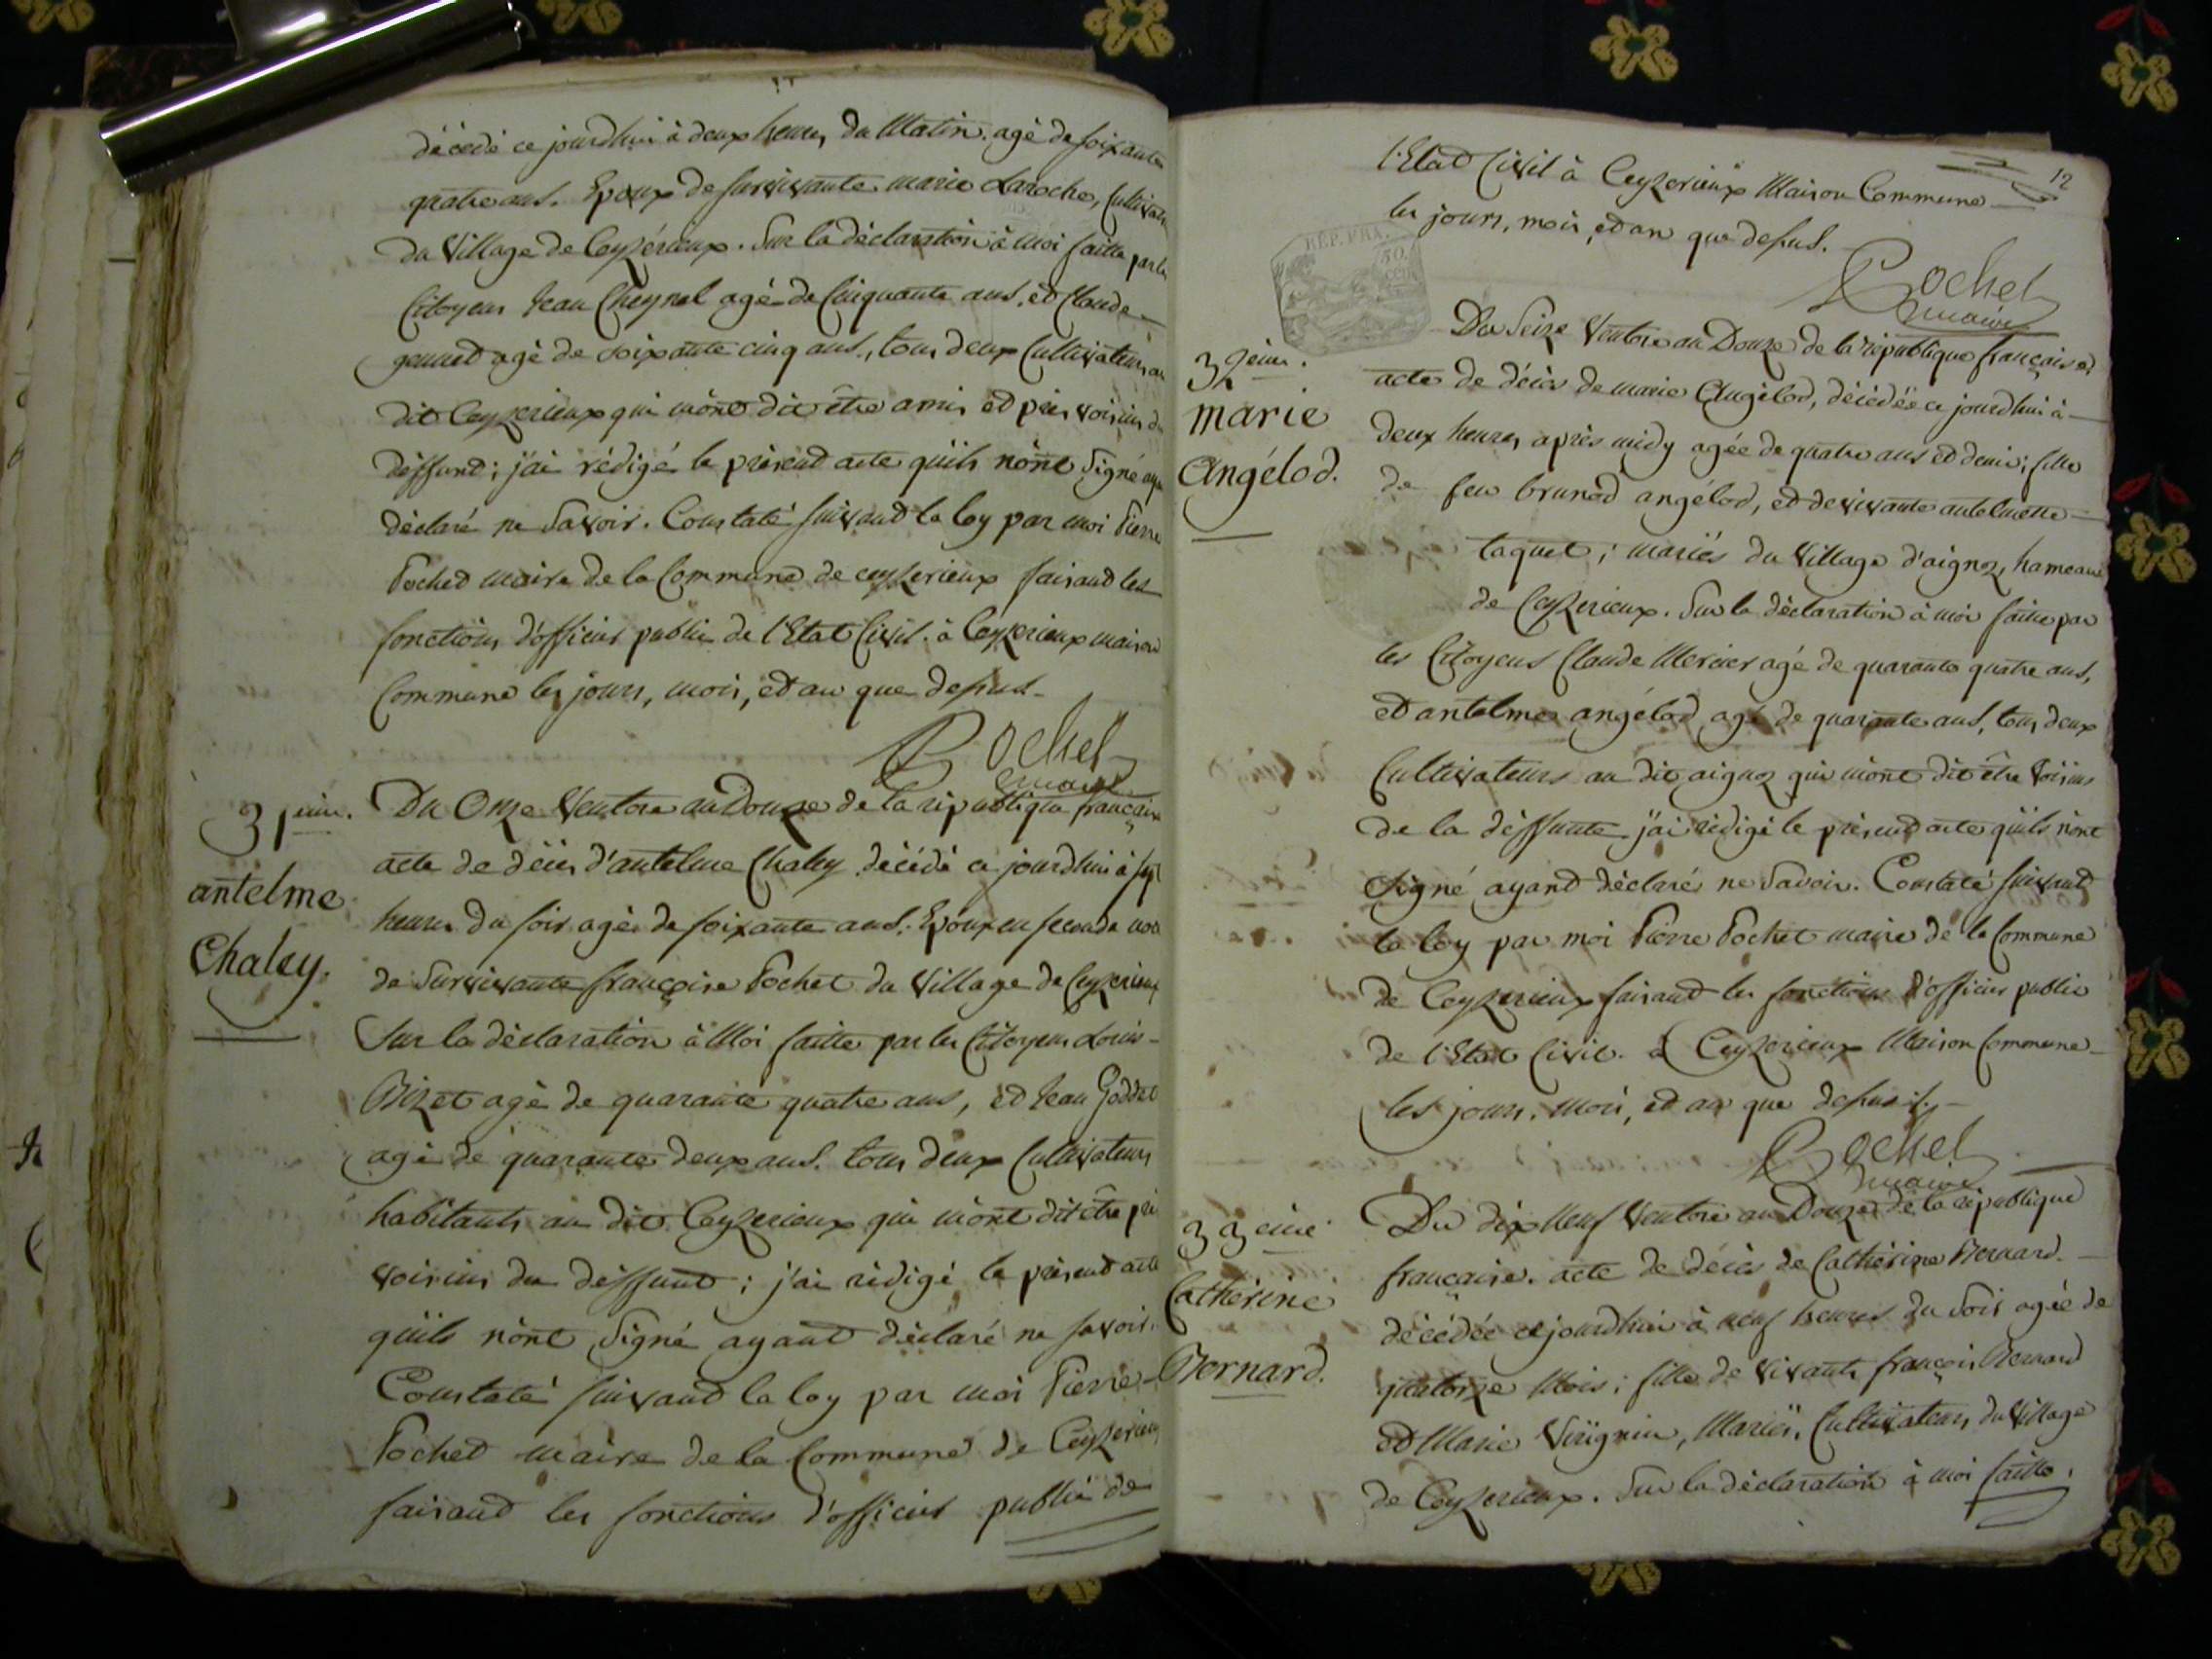 décédé ce jourdhui à deux heures du Matin. agé de soixante
quatre ans. Epoux de survivante marie Laroche, Cultivateur
du Village de Ceyzérieux. Sur la déclaration à moi faitte par les
Citoyens Jean Cheynel agé de Cinquante ans, et Claude
agé de soixante cinq ans, tous deux Cultivateurs au
dit Ceyzerieux qui m'ont dit être amis et près voisins du
déffunt ; j'ai rédigé le présent acte qu'ils n'ont Signé ayant
déclaré ne Savoir. Constaté suivant la loy par moi Pierre
Pochet maire de la Commune de ceyzerieux faisant les
fonctions d'officier public de l'Etat Civil. à Ceyzerieux maison
Commune les jours, mois, et an que dessus.
Pochet
maire
31 eme.
antelme
Chaley.
Du Onze Ventose an Douze de la république française
acte de décès d'antelme Chaley décédé ce jourdhui à sept
heures du soir agé de soixante ans. Epoux en seconde noce
de Survivante françoise Pochet du Village de Ceyzerieux
Sur la déclaration à Moi faitte par les Citoyens Louis
Bizet agé de quarante quatre ans, et Jean Goddet
agé de quarante deux ans. tous deux Cultivateurs
habitants au dit Ceyzerieux qui m'ont dit être près
voisins du déffunt ; j'ai rédigé le présent acte
qu'ils n'ont Signé ayant déclaré ne savoir.
Constaté suivant la loy par moi Pierre
Pochet maire de la Commune de Ceyzerieux
faisant les fonctions d'officier public de
12
l'Etat Civil à Ceyzerieux Maison Commune
les jours, mois, et an que dessus.
Pochet
maire
REP. FRA.
50.
CEN
32 eme.
marie
Angélod.
Du Seize Ventose an Douze de la république française
acte de décès de marie Angélod, décédée ce jourdhui à
deux heures après midy agée de quatre ans et demie ; fille
de feu brunod angélod, et de vivante antelmette
taquet ; mariés du Village d'aignoz, hameau
de Ceyzerieux. Sur la déclaration à moi faitte par
les Citoyens Claude Mercier agé de quarante quatre ans,
et antelme angélod agé de quarante ans, tous deux
Cultivateurs au dit aignoz qui m'ont dit être Voisins
de la déffunte j'ai rédigé le présent acte qu'ils n'ont
Signé ayant déclaré ne Savoir. Constaté suivant
la loy par moi Pierre Pochet maire de la Commune
de Ceyzerieux faisant les fonctions d'officier public
de l'Etat Civil. à Ceyzerieux Maison Commune
les jours, mois, et an que dessus
Pochet
maire
33 eme
Cathérine
Bernard.
Du dix Neuf Ventose an Douze de la république
française. acte de décès de Cathérine Bernard.
décédée ce jourdhui à neuf heures du Soir agée de
quatorze Mois ; fille de Vivants françois Bernard
et Marie Virignin, Mariés, Cultivateurs du Village
de Ceyzerieux. Sur la déclaration à moi faitte